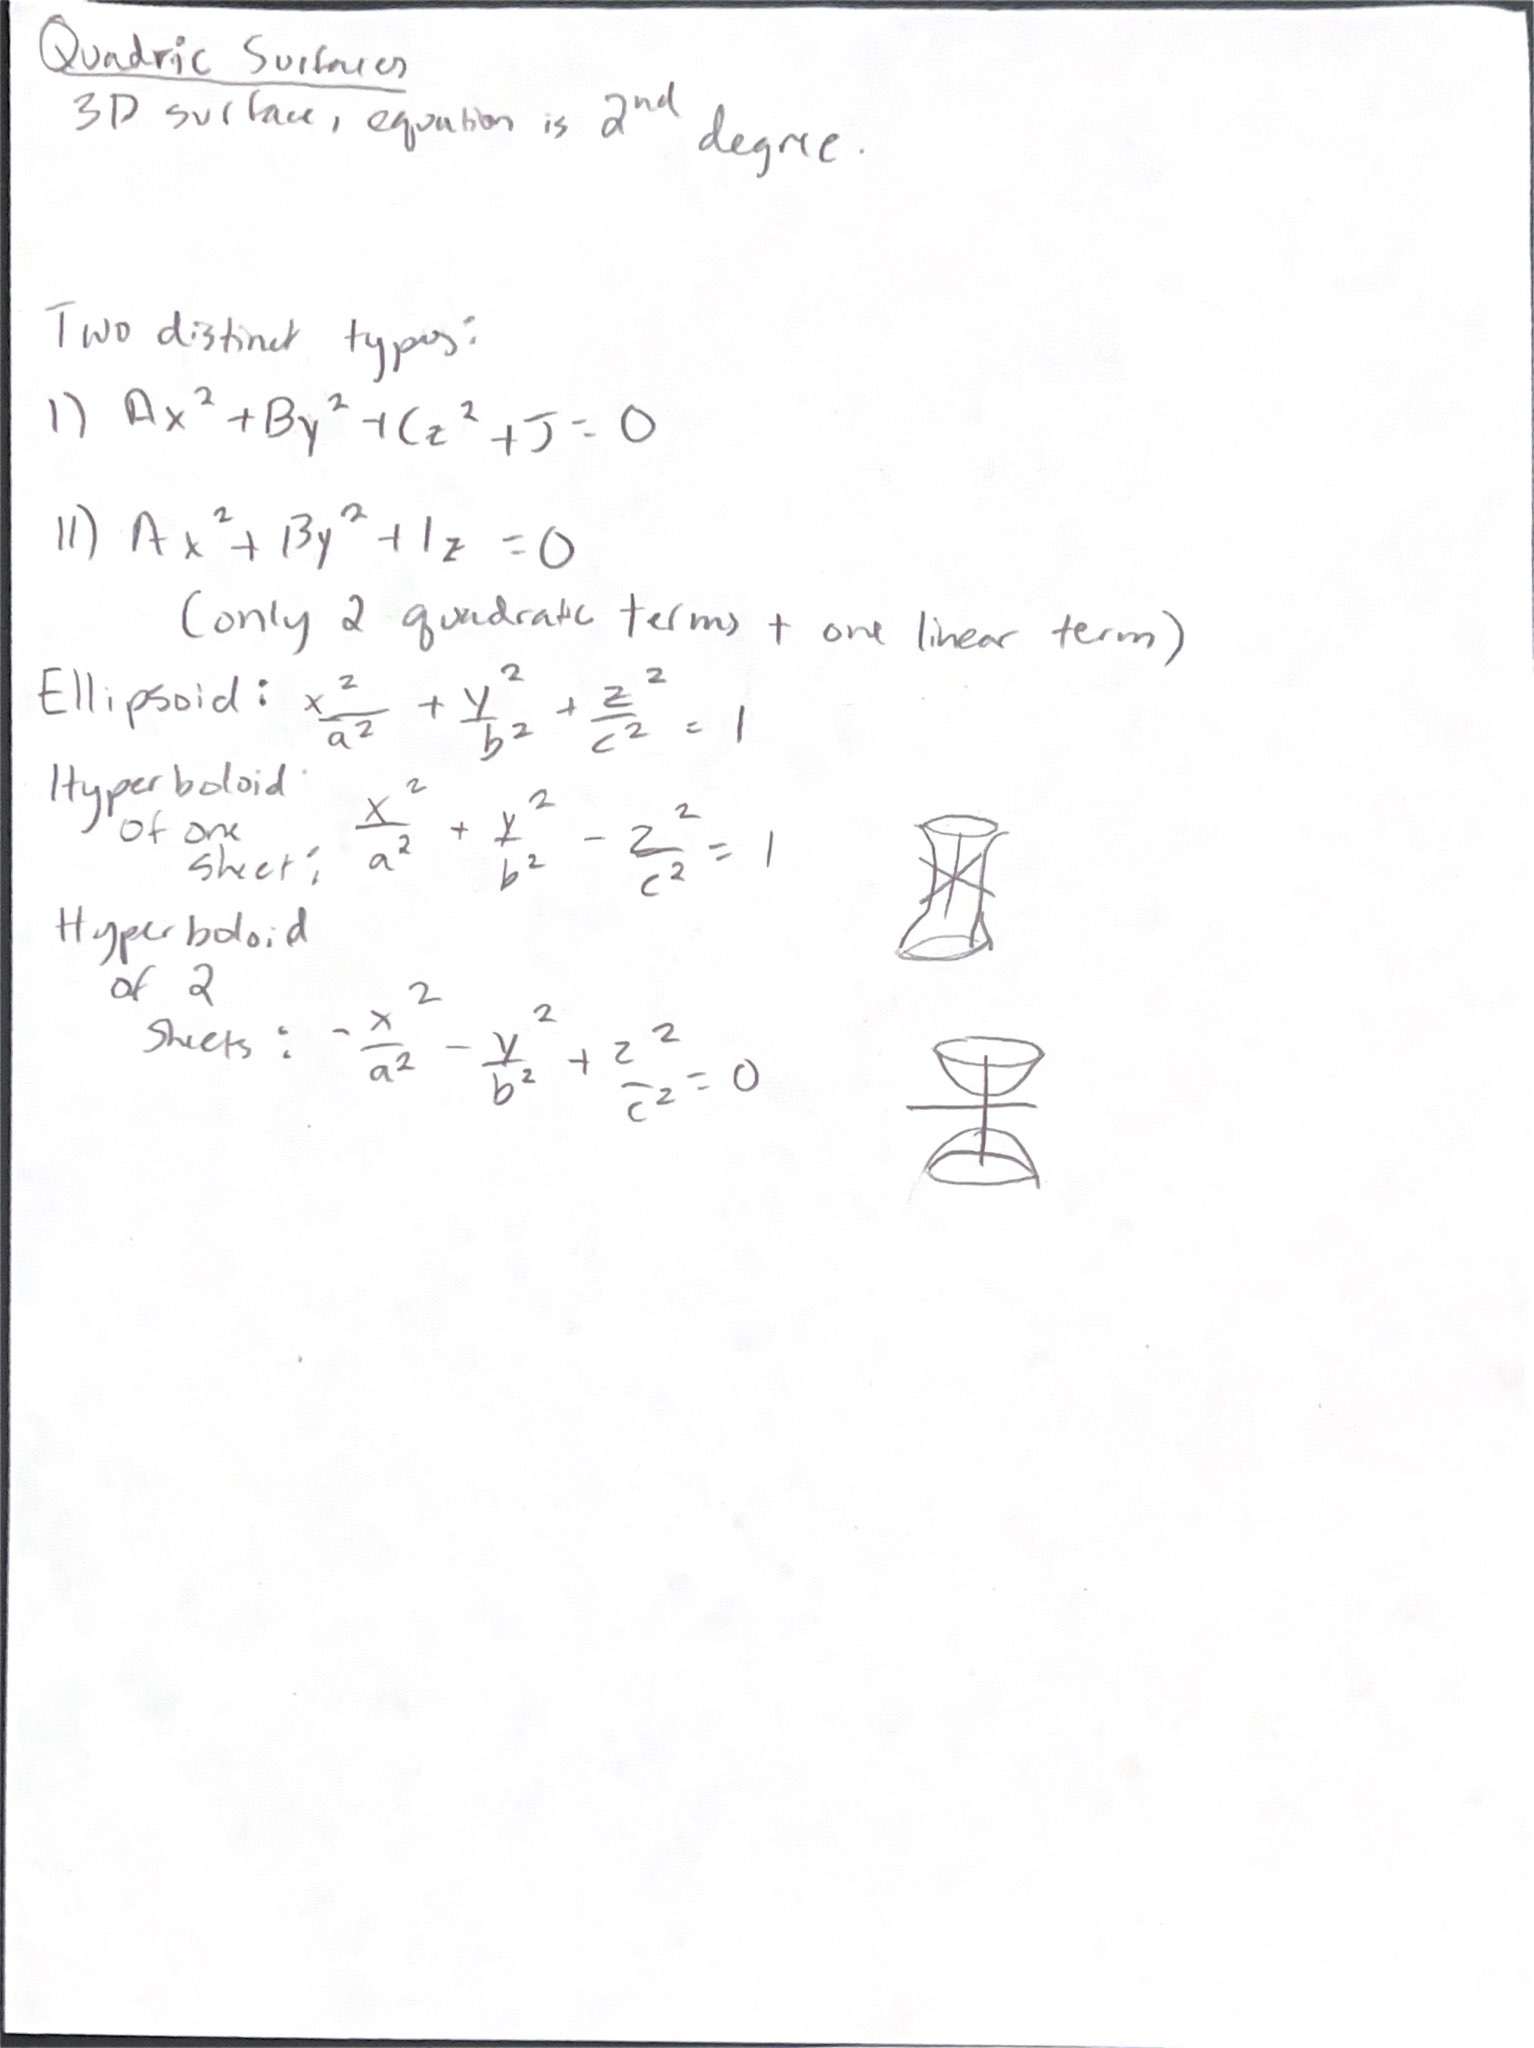 Quadric Surfaces
3D surface, equation is 2nd degree.
Two distinct types:
I) Ax² + By² + Cz² + J = 0
II) Ax² + By² + Iz = 0
(only 2 quadratic terms + one linear term)
Ellipsoid: x²/a² + y²/b² + z²/c² = 1
Hyperboloid
of one
sheet: x²/a² + y²/b² - z²/c² = 1
Hyperboloid
of 2
sheets: -x²/a² - y²/b² + z²/c² = 0